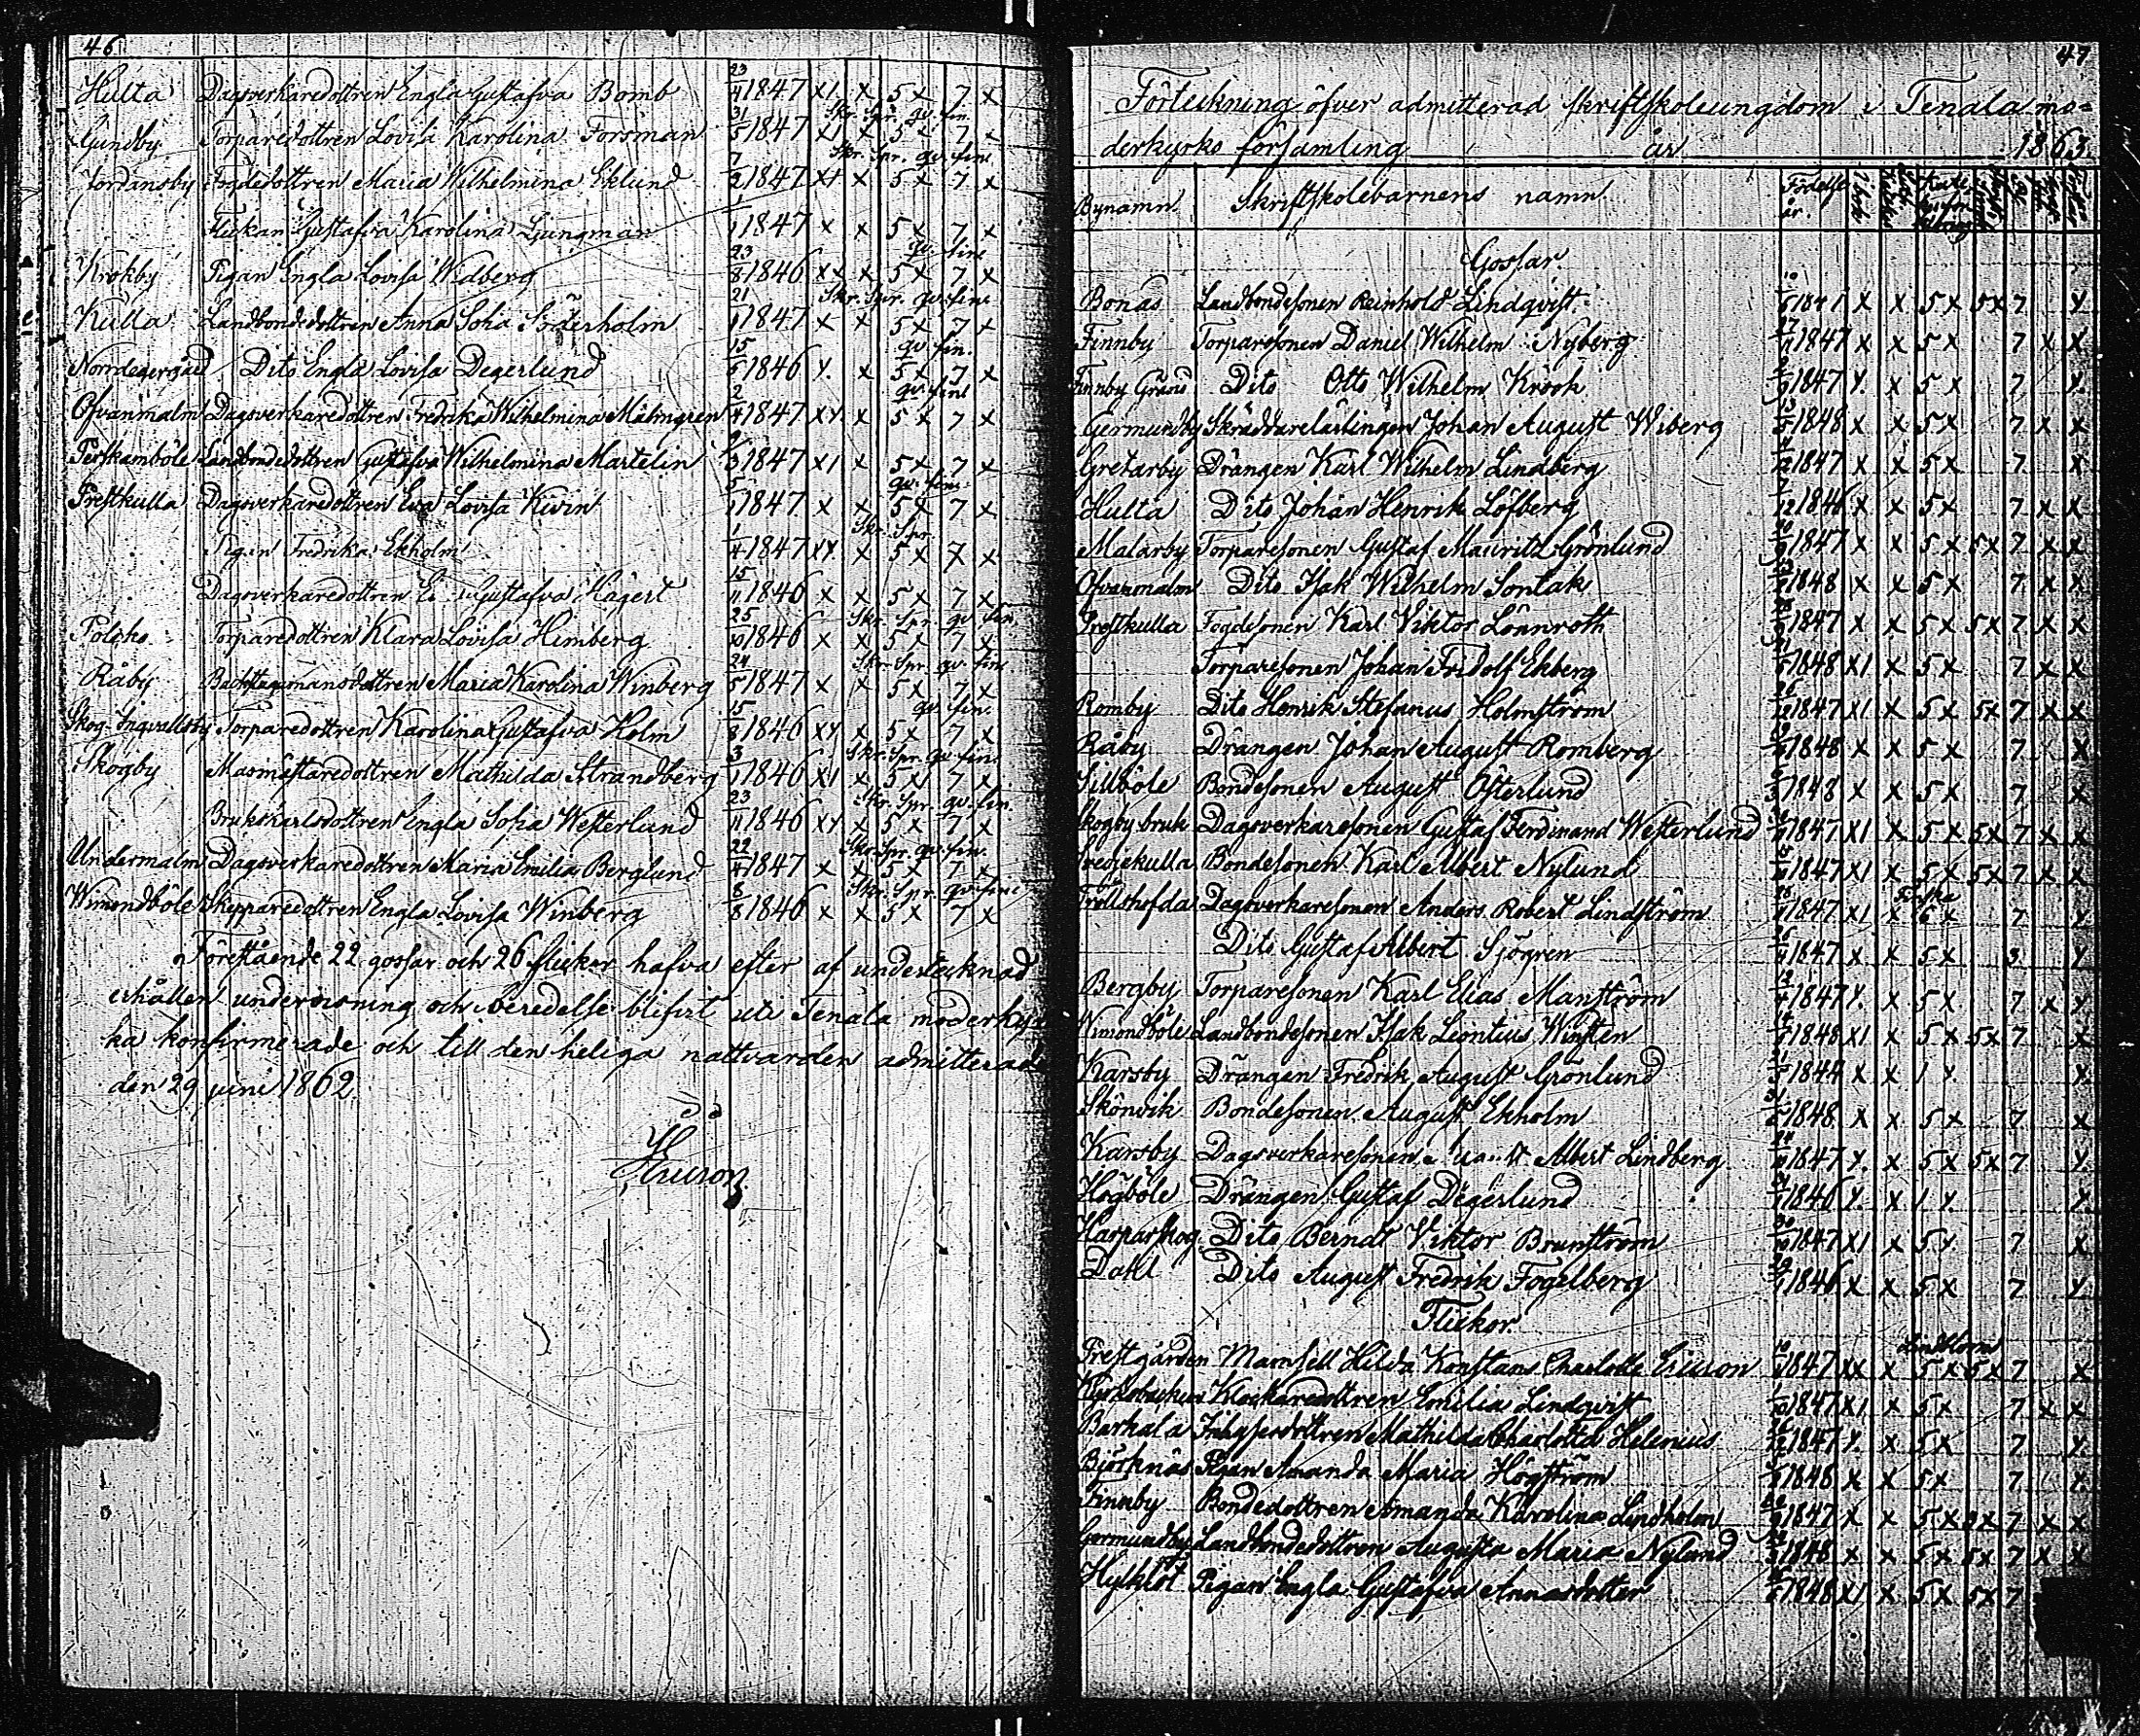 46
Hulta Dagsverkaredottren Engla Gustafva Bomb 23/4 1847 x1 x 5 x 7 x
Skr. Spr. qv. fin.
Gundby Torparedottren Lovisa Karolina Forsman 31/5 1847 x1 x 5 x 7 x
Skr. Spr. qv. fin.
Jordansby Fogdedottren Maria Wilhelmina Eklund 7/2 1847 x1 x 5 x 7 x
Flickan Gustafva Karolina Ljungman 1/1 1847 x x 5 x 7 x
qv. fin.
Krokby Pigan Engla Lovisa Widberg 23/8 1846 xx x 5 x 7 x
Skr. Spr. qv. fine
Kulla Landbondedottren Anna Sofia Söderholm 21/1 1847 x x 5 x 7 x
qv. fin.
Norrdegergård Dito Engla Lovisa Degerlund 15/5 1846 x. x 5 x 7 x
qv. fint
Ofvanmalm Dagsverkaredottren Fredrika Wilhelmina Malmgren 2/4 1847 xx. x 5 x 7 x
Perskamböle Landbondedottren Gustafva Wilhelmina Martelin 9/3 1847 x1 x 5 x 7 x
qv. fin.
Prestkulla Dagsverkaredottren Eva Lovisa Kivin 5/1 1847 x x 5 x 7 x
Skr. Spr
Pigan Fredrika Ekholm 1/4 1847 xx. x 5 x 7 x
Dagsverkaredottren Gustafva Hägert 15/11 1846 x x 5 x 7 x
Skr. Spr. qv. fin.
Torparedottren Klara Lovisa Himberg 25/10 1846 x x 5 x 7 x
Skr. Spr. qv. fin.
Råby Backstugumansdottren Maria Karolina Winberg 24/5 1847 x x 5 x 7 x
qv. fin.
Skog-Ingvallsby Torparedottren Karolina Gustafva Holm 15/8 1846 xx x 5 x 7 x
Skr. Spr. qv. fin.
Skogby Masmästaredottren Mathilda Strandberg 3/1 1846 x1 x 5 x 7 x
Skr. Spr. qv. fin.
Brukskarlsdottren Engla Sofia Westerlund 23/11 1846 xx x 5 x 7 x
Skr. Spr. qv. fin.
Undermalm Dagsverkaredottren Maria Emilia Berglund 22/4 1847 x x 5 x 7 x
Skr. Spr. qv. fine
Wimondböle Skepparedottren Engla Lovisa Winberg 8/8 1846 x x 5 x 7 x
Förestående 22 gossar och 26 flickor hafva efter af undertecknad
erhållen undervisning och beredelse blifvit uti Tenala moderkyr
ka konfirmerade och till den heliga nattvarden admitterade
den 29 juni 1862.
47
Förteckning öfver admitterad skriftskoleungdom i Tenala mo=
derkyrko församling år 1863.
Bynamn. Skriftskolebarnens namn. Födelse år.
Gossar.
Bonäs Landbondesonen Reinhold Lindqvist. 1841 x x 5 x 5x 7 x
Finnby Torparesonen Daniel Wilhelm Nyberg 1847 x x 5 x 7 x x
Finnby Gränd Dito Otto Wilhelm Krook 1847 x. x 5 x 7 x.
Germundby Skräddarelärlingen Johan August Wiberg 1848 x x 5x 7 x x
Gretarby Drängen Karl Wilhelm Lindberg 1847 x x 5x 7 x
Hulta Dito Johan Henrik Löfberg 1846 x x 5x 7 x x
Malarby Torparesonen Gustaf Mauritz Grönlund 1847 x x 5 x 5x 7 x x
Ofvanmalm Dito Isak Wilhelm Sontak 1848 x x 5x 7 x x
Prestkulla Fogdesonen Karl Viktor Lönnroth 1847 x x 5 x 5x 7 x x
Torparesonen Johan Fridolf Ekberg 1848 x1 x 5x 7 x x
Romby Dito Henrik Stefanus Holmström 1847 x1 x 5x 5x 7 x x
Råby Drängen Johan August Romberg 1848 x x 5 x 7 x
Sillböle Bondesonen August Österlund 1848 x x 5x 7 x
Skogby bruk Dagsverkaresonen Gustaf Ferdinand Westerlund 1847 x1 x 5x 5x 7 x x
Bondesonen Karl Albert Nylund 1847 x1 x 5 x 5x 7 x x
Finska
Trollshofda Dagsverkaresonen Anders Robert Lindström 1847 x1 x 6 x 7 x
Dito Gustaf Albert Sjögren 1847 x x 5 x 3 x
Bergby Torparesonen Karl Elias Manström 1847 x. x 5 x 7 x x
Wimondböle Landbondesonen Isak Leontius Winsten 1848 x1 x 5x 5x 7 x
Karsby Drängen Fredrik August Grönlund 1844 x x 1 x. x.
Skönvik Bondesonen August Ekholm 1848 x x 5x 7 x
Karsby Dagsverkaresonen Albert Lindberg 1847 x. x 5x 5x 7 x.
Högböle Drängen Gustaf Degerlund 1846 x. x 1 x. x.
Harparskog Dito Berndt Viktor Brunström 1847 x1 x 5 x. 7 x
Dahl Dito August Fredrik Fogelberg 1846 x x 5x 7 x.
Flickor.
Prestgården Mamsell Hilda Konstans Charlotte Ericson 1847 xx x 5x 5x 7 x
Kyrkobacken Klockaredottren Emilia Lindqvist 1847 x1 x 5x 7 x x
Barkala Inhysesdottren Mathilda Charlotta Helenius 1847 x. x 5x 7 x.
Björknäs Pigan Amanda Maria Högström 1848 x x 5x 7 x.
Finnby Bondedottren Amanda Karolina Lindholm 1847 x x 5x 5x 7 x x
Germundby Landbondedottren Augusta Maria Nylund 1848 x x 5x 5x 7 x x
Pigan Engla Gustafva Annasdotter 1848 x1 x 5x 5x 7